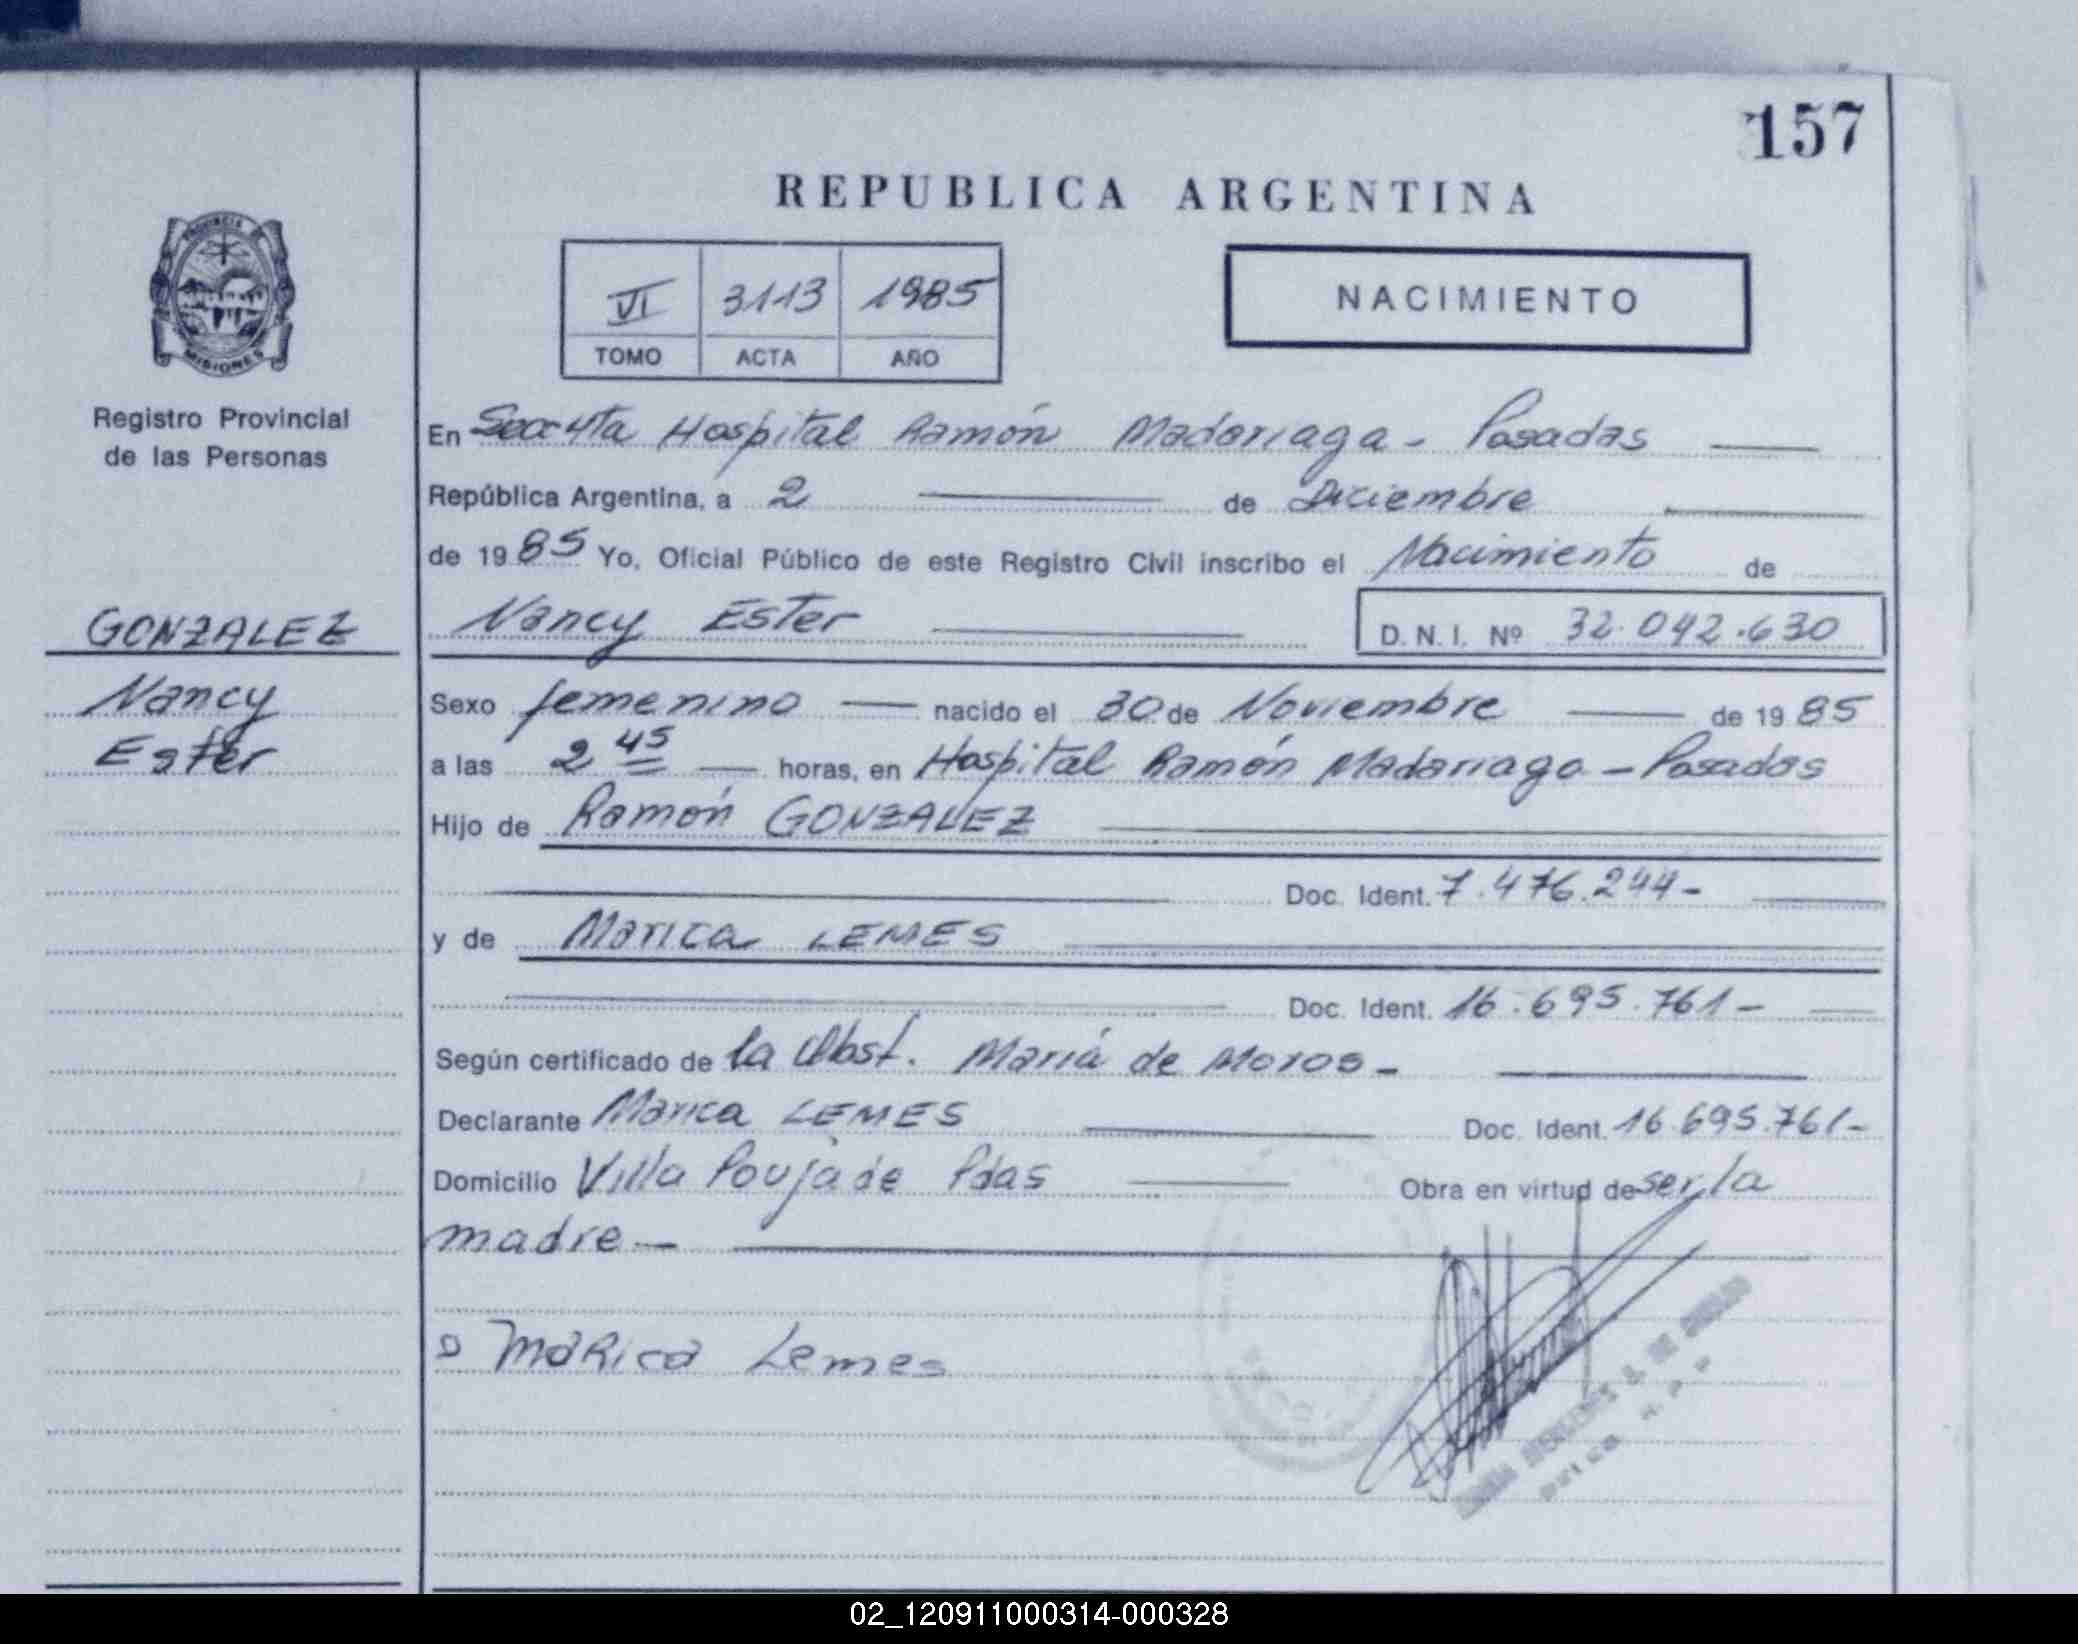 157
REPUBLICA ARGENTINA
PROVINCIA DE
MISIONES
VI 3113 1985
TOMO ACTA AÑO
NACIMIENTO
Registro Provincial
de las Personas
En Secc 4ta Hospital Ramón Madariaga - Posadas
República Argentina, a 2 de Diciembre
de 1985 Yo, Oficial Público de este Registro Civil inscribo el Nacimiento de
GONZALEZ
Nancy
Ester
Nancy Ester D.N.I. Nº 32.042.630
Sexo femenino nacido el 30 de Noviembre de 1985
a las 2 45 horas, en Hospital Ramón Madariaga - Posadas
Hijo de Ramón GONZALEZ
Doc. Ident. 7.476.244-
y de Marica LEMES
Doc. Ident. 16.695.761-
Según certificado de la Obst. María de Moros -
Declarante Marica LEMES Doc. Ident. 16.695.761-
Domicilio Villa Poujade Pdas Obra en virtud de ser la
madre -
Marica Lemes
02_120911000314-000328